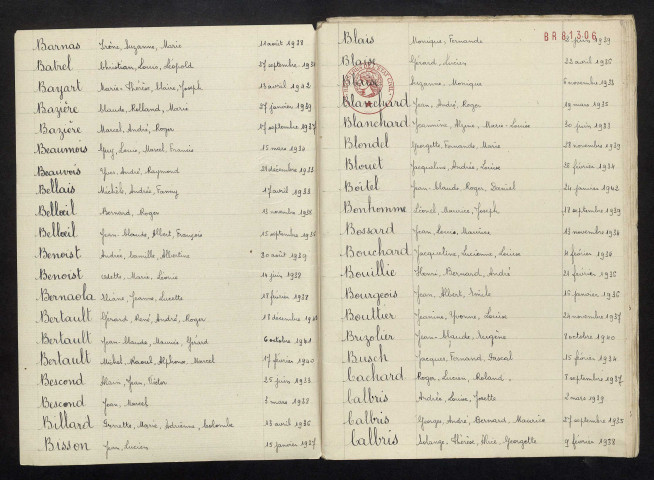 Barnas Irène, Suzanne, Marie 11 août 1938
Batrel Christian, Louis, Léopold 27 septembre
Bayart Marie-Thérèse, Claire, Joseph 13 avril 1942
Bazière Claude, Rolland, Marie 27 janvier 1939
Bazière Marcel, André, Roger 17 septembre 1937
Beaumois Guy, Louis, Marcel, Francis 15 mars 1934
Beauvois Yves, André, Raymond 24 décembre 1933
Bellais Michèle, Andrée, Fanny 17 avril 1938
Bellœil Bernard, Roger 13 novembre
Bellœil Jean-Claude, Albert, François 15 septembre
Benoist Andrée, Camille, Albertine 30 août 1939
Benoist Odette, Marie, Léonie 14 juin 1932
Bernaola Eliane, Jeanne, Lucette 18 février 1938
Bertault Gérard, René, André, Roger 18 décembre
Bertault Jean-Claude, Maurice, Gérard 6 octobre 1941
Bertault Michel, Raoul, Alphonse, Marcel 17 février 1940
Bescond Alain, Jean, Victor 25 juin 1933
Bescond Jean, Marcel 3 mars 1938
Billard Ginette, Marie, Adrienne, Colombe 13 avril 1936
Bisson Jean, Lucien 15 janvier 1937
BR81306
Blais Monique, Fernande juin 1939
Blaise Gérard, Lucien 22 avril
Blaise Suzanne, Monique 6 novembre
Blanchard Jean, André, Roger 19 mars 1935
Blanchard Jeannine, Marie-Louise 30 juin 1933
Blondel Georgette, Fernande, Marie 28 novembre 1939
Blouet Jacqueline, Andrée, Louise 25 février 1934
Boitel Jean-Claude, Roger, Daniel 24 janvier 1942
Bonhomme Lionel, Maurice, Joseph 18 septembre 1939
Bossard Jean, Louis, Maurice 13 novembre
Bouchard Jacqueline, Lucienne, Louise 10 février
Bouillie Henri, Bernard, André 21 février 1936
Bourgeois Jean, Albert, 15 janvier 1936
Bouttier Jeanine, Yvonne, Louise 24 novembre 1937
Brizolier Jean-Claude, Eugène 8 octobre 1940
Busch Jacques, Fernand, Pascal 15 février 1934
Cachard Roger, Lucien, Roland 7 septembre 1937
Calbris Andrée, Louise, Josette 2 mars 1939
Calbris Georges, André, Bernard, Maurice 27 septembre 1935
Calbris Solange, Thérèse, Alice, Georgette 9 février 1938